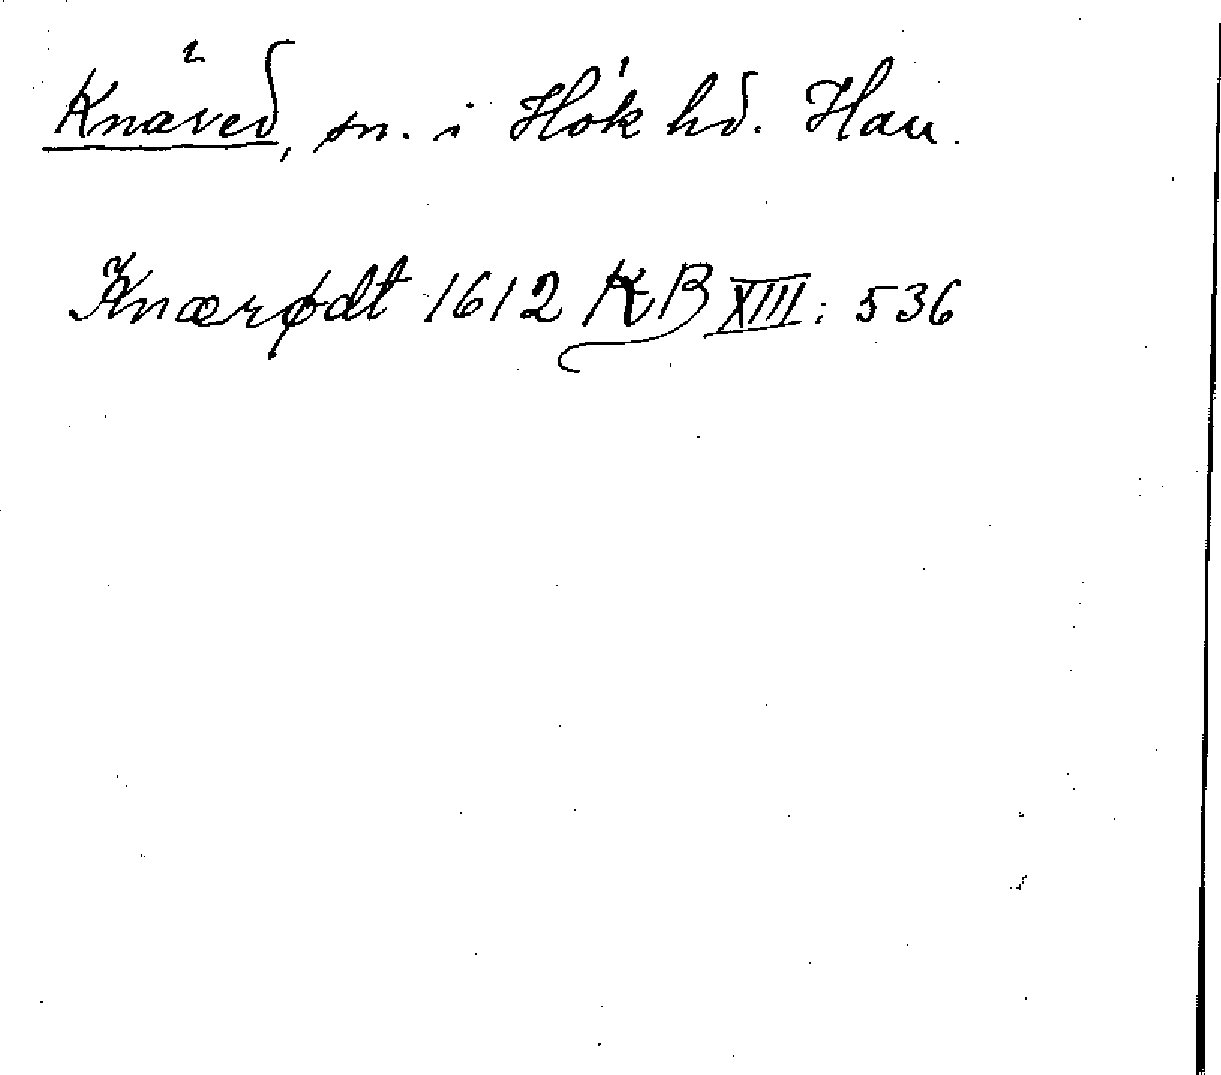 Knäred, sn. i Hök hd. Hall.
Knærødt 1612 KB XIII: 536